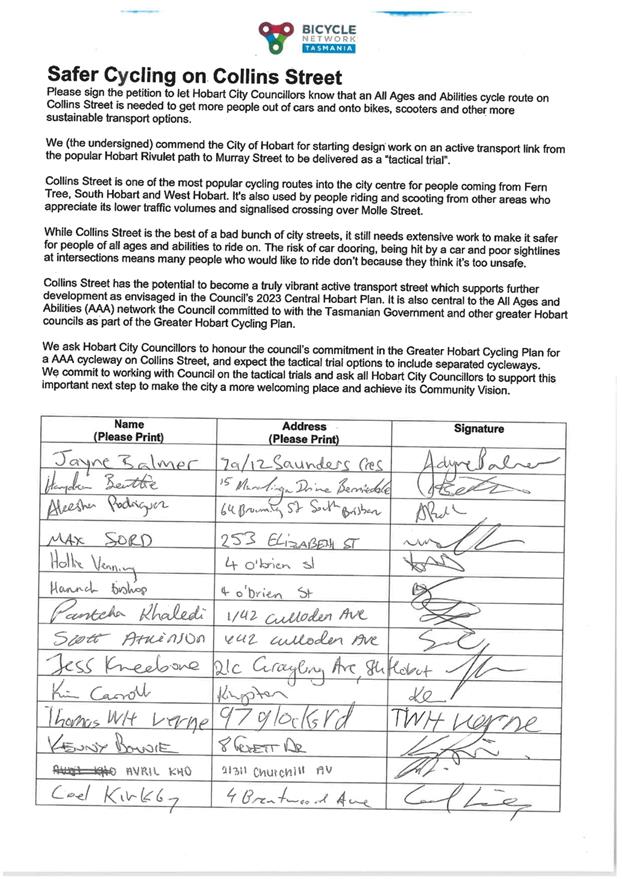 BICYCLE
NETWORK
TASMANIA
Safer Cycling on Collins Street
Please sign the petition to let Hobart City Councillors know that an All Ages and Abilities cycle route on
Collins Street is needed to get more people out of cars and onto bikes, scooters and other more
sustainable transport options.
We (the undersigned) commend the City of Hobart for starting design work on an active transport link from
the popular Hobart Rivulet path to Murray Street to be delivered as a "tactical trial".
Collins Street is one of the most popular cycling routes into the city centre for people coming from Fern
Tree, South Hobart and West Hobart. It's also used by people riding and scooting from other areas who
appreciate its lower traffic volumes and signalised crossing over Molle Street.
While Collins Street is the best of a bad bunch of city streets, it still needs extensive work to make it safer
for people of all ages and abilities to ride on. The risk of car dooring, being hit by a car and poor sightlines
at intersections means many people who would like to ride don't because they think it's too unsafe.
Collins Street has the potential to become a truly vibrant active transport street which supports further
development as envisaged in the Council's 2023 Central Hobart Plan. It is also central to the All Ages and
Abilities (AAA) network the Council committed to with the Tasmanian Government and other greater Hobart
councils as part of the Greater Hobart Cycling Plan.
We ask Hobart City Councillors to honour the council's commitment in the Greater Hobart Cycling Plan for
a AAA cycleway on Collins Street, and expect the tactical trial options to include separated cycleways.
We commit to working with Council on the tactical trials and ask all Hobart City Councillors to support this
important next step to make the city a more welcoming place and achieve its Community Vision.
Name Address Signature
(Please Print) (Please Print)
Jayne Balmer 7a/12 Saunders Cres Jayne Balmer
Hayden Beattie 15 Drive
Aleesha Rodriguez 64 St South
MAX SORD 253 ELIZABETH ST
Hollie Venning 4 o'brien st
Hannah bishop 4 o'brien St
Khaledi 1/42 Culloden Ave
Scott ATKINSON 1/42 Culloden Ave
Jess Kneebone 21c Grayling Ave,
Kim Carroll Kingston
Thomas WH Verne 97 glocksrd TWH verne
KENNY BOWIE 8 DR
AVRIL KHO Churchill AV
Kirkby 4 Brentwood Ave